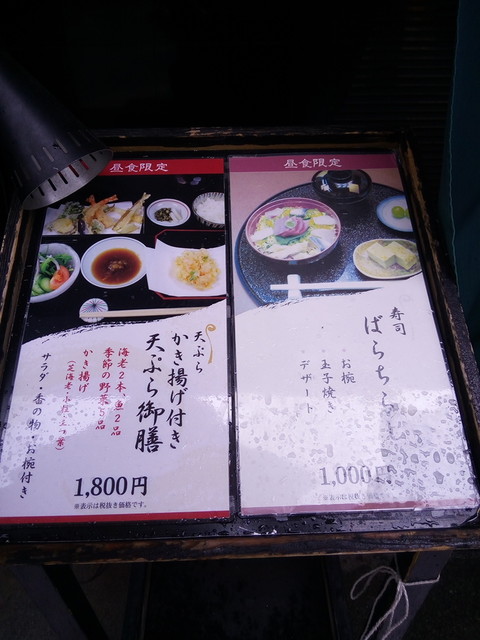 昼食限定
天ぷら
かき揚げ付き
天ぷら御膳
海老2本、魚2品
季節の野菜5品
かき揚げ
サラダ・香の物・お椀付き
1,800円
※表示は税抜き価格です。
昼食限定
寿司
ばらちらし
お椀
玉子焼き
デザート
1,000円
※表示は税抜き価格です。